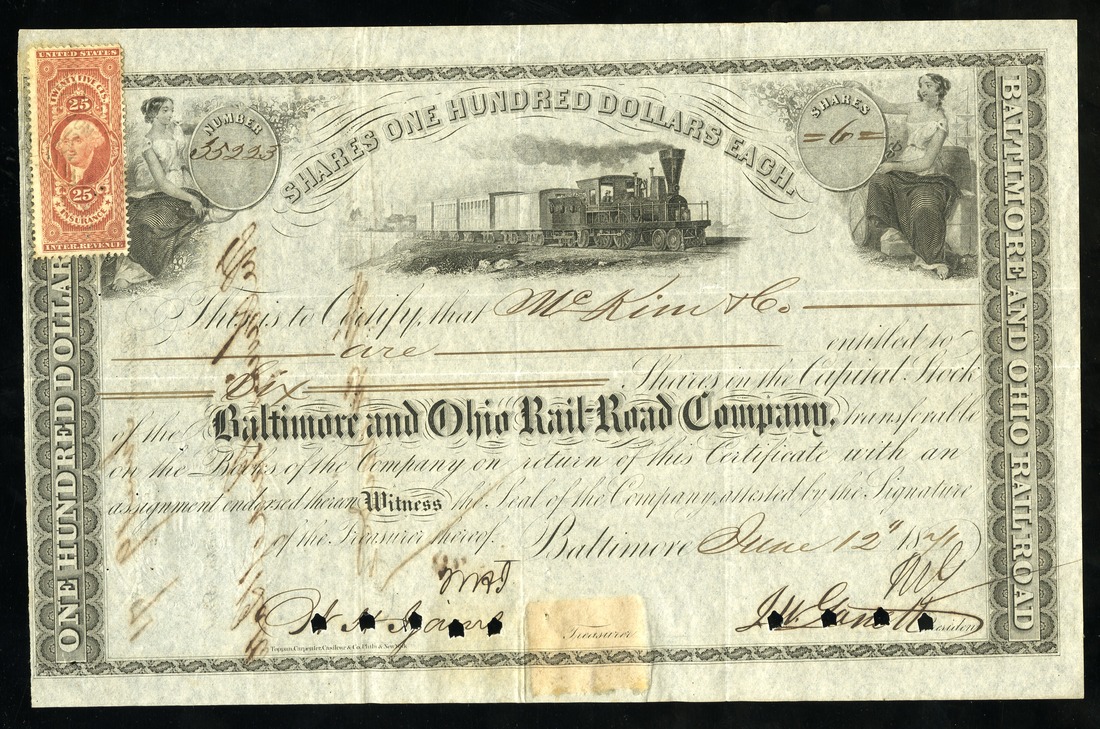 UNITED STATES
TWENTY FIVE CTS.
25
25
INSURANCE
INTER. REVENUE
NUMBER
35223
SHARES ONE HUNDRED DOLLARS EACH.
SHARES
=6=
This is to Certify, that McKim & Co.
are entitled to
Six Shares in the Capital Stock
of the Baltimore and Ohio Rail-Road Company, transferable
on the Books of the Company on return of this Certificate with an
assignment endorsed thereon Witness the Seal of the Company, attested by the Signature
of the Treasurer thereof. Baltimore June 12" 18
Treasurer
J W Garrett President
Toppan, Carpenter, Casilear & Co. Phila & New York
ONE HUNDRED DOLLAR
BALTIMORE AND OHIO RAIL ROAD